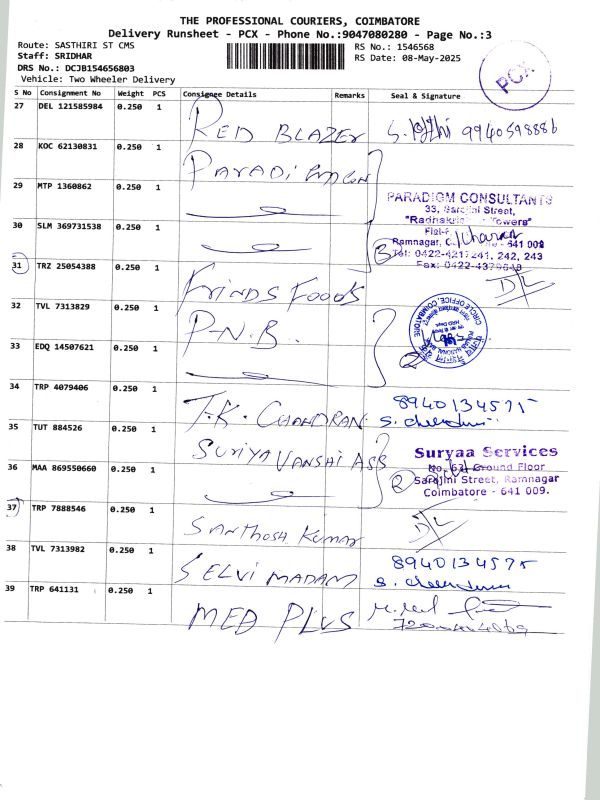 THE PROFESSIONAL COURIERS, COIMBATORE
Delivery Runsheet - PCX - Phone No.:9047080280 - Page No.:3
Route: SASTHIRI ST CMS
Staff: SRIDHAR
DRS No.: DCJB154656803
Vehicle: Two Wheeler Delivery
RS No.: 1546568
RS Date: 08-May-2025
PCX
S No Consignment No Weight PCS Consignee Details Remarks Seal & Signature
27 DEL 121585984 0.250 1 RED BLAZER 9940598886
28 KOC 62130831 0.250 1
29 MTP 1360862 0.250 1
PARADIGM CONSULTANTS
33, Sarojini Street,
Towers"
Ramnagar, 641 009
Tel: 0422-4217241, 242, 243
Fax: 0422-4379643
30 SLM 369731538 0.250 1 3
31 TRZ 25054388 0.250 1 FOODS D/L
32 TVL 7313829 0.250 1 P.N.B.
CIRCLE OFFICE, COIMBATORE
33 EDQ 14507621 0.250 1 2
34 TRP 4079406 0.250 1 T.K. CHANDRAN 8940134575
35 TUT 884526 0.250 1 SURIYAVANSHI ASS
Suryaa Services
No. 63, Ground Floor
Sarojini Street, Ramnagar
Coimbatore - 641 009.
36 MAA 869550660 0.250 1 2
37 TRP 7888546 0.250 1 SANTHOSH KUMAR D/L
38 TVL 7313982 0.250 1 SELVI MADAM 8940134575
39 TRP 641131 0.250 1 MED PLUS